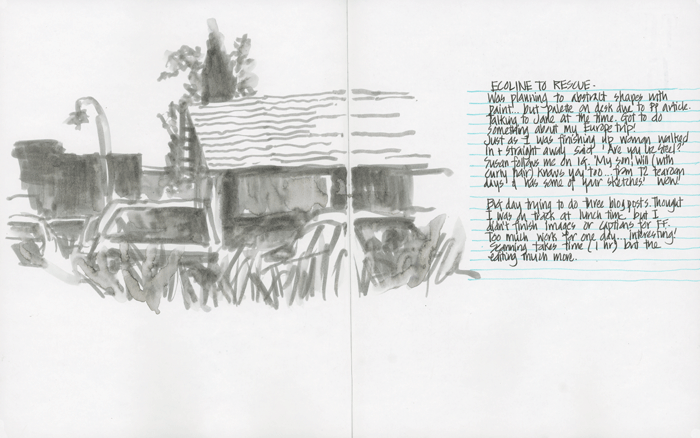 ECOLINE TO RESCUE.
Was planning to abstract shapes with
paint... but palette on desk due to PP article.
Talking to Jane at the time. Got to do
something about my Europe trip!
Just as I was finishing up woman walked
in & straight away said "Are you Liz Steel?"
Susan follows me on IG. 'My son, Will (with
curly hair) knows you too... from T2 tearoom
days & has some of your sketches! Wow!
Big day trying to do three blog posts. Thought
I was on track at lunch time but I
didn't finish images or captions for FF.
Too much work for one day... Interesting!
Scanning takes time (1 hr) but the
editing much more.